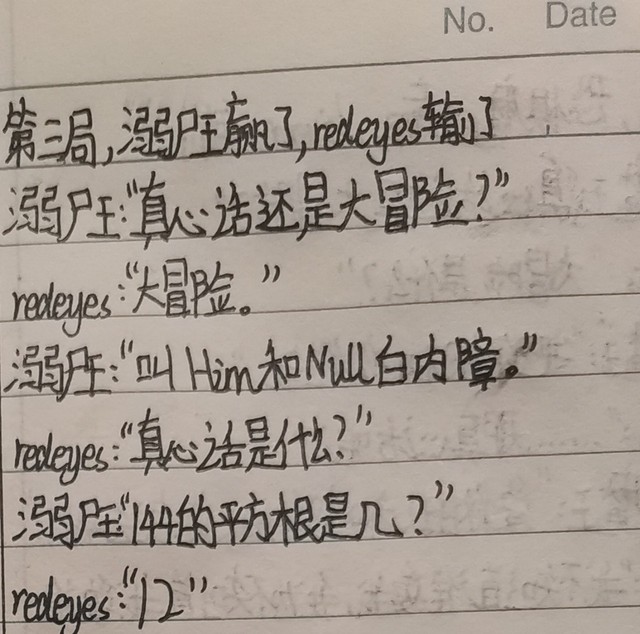 No. Date
第三局,溺尸王赢了,redeyes输了
溺尸王:“真心话还是大冒险?”
redeyes:“大冒险。”
溺尸王:“叫Him和Null白内障。”
redeyes:“真心话是什么?”
溺尸王“144的平方根是几?”
redeyes:“12”